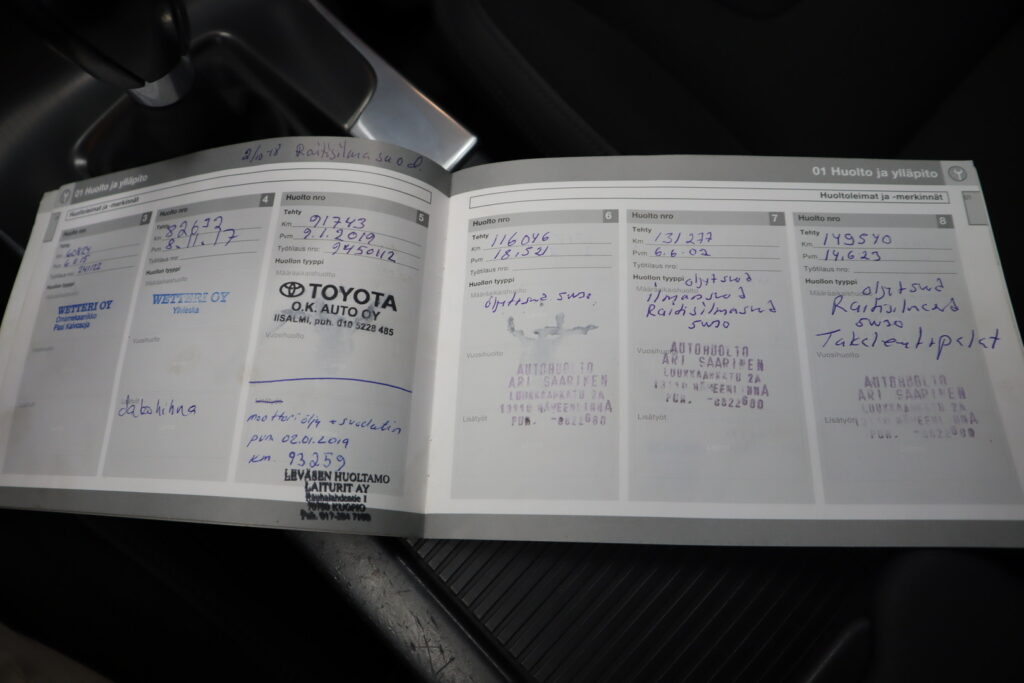 2/10-18 Raitisilmasuod.
01 Huolto ja ylläpito
Huoltoleimat ja -merkinnät
3
Huolto nro
Tehty
Km
Pvm
Työtilaus nro:
Huollon tyyppi
WETTERI OY
Pasi
4
Huolto nro
Tehty
Km 82632
Pvm 8.11.17
Työtilaus nro:
Huollon tyyppi
Määräaikaishuolto
WETTERI OY
Ylivieska
Vuosihuolto
5
Huolto nro
Tehty
Km 91743
Pvm 9.1.2019
Työtilaus nro: 9450112
Huollon tyyppi
Määräaikaishuolto
TOYOTA
O.K. AUTO OY
IISALMI, puh. 010 5228 485
Vuosihuolto
moottoriöljy + suodatin
pvm 02.01.2019
km. 93259
LEVÄSEN HUOLTAMO
LAITURIT AY
Rauhalahdentie 1
KUOPIO
01 Huolto ja ylläpito
Huoltoleimat ja -merkinnät
6
Huolto nro
Tehty
Km 116046
Pvm 18.521
Työtilaus nro:
Huollon tyyppi
Määräaikaishuolto
5w30
Vuosihuolto
AUTOHUOLTO
ARI SAARINEN
LUUKKAANKATU 2A
HÄMEENLINNA
PUH. -6822680
Lisätyöt
7
Huolto nro
Tehty
Km 131277
Pvm 6.6.02
Työtilaus nro:
Huollon tyyppi öljytsuod
ilmansuod
Raitisilmasuod
5w30
Vuosihuolto
AUTOHUOLTO
ARI SAARINEN
LUUKKAANKATU 2A
HÄMEENLINNA
PUH. -6822680
Lisätyöt
8
Huolto nro
Tehty
Km 149540
Pvm 14.623
Työtilaus nro:
Huollon tyyppi
Määräaikaishuolto
öljytsuod
5w30
Vuosihuolto
AUTOHUOLTO
ARI SAARINEN
LUUKKAANKATU 2A
HÄMEENLINNA
PUH. -6822680
Lisätyöt